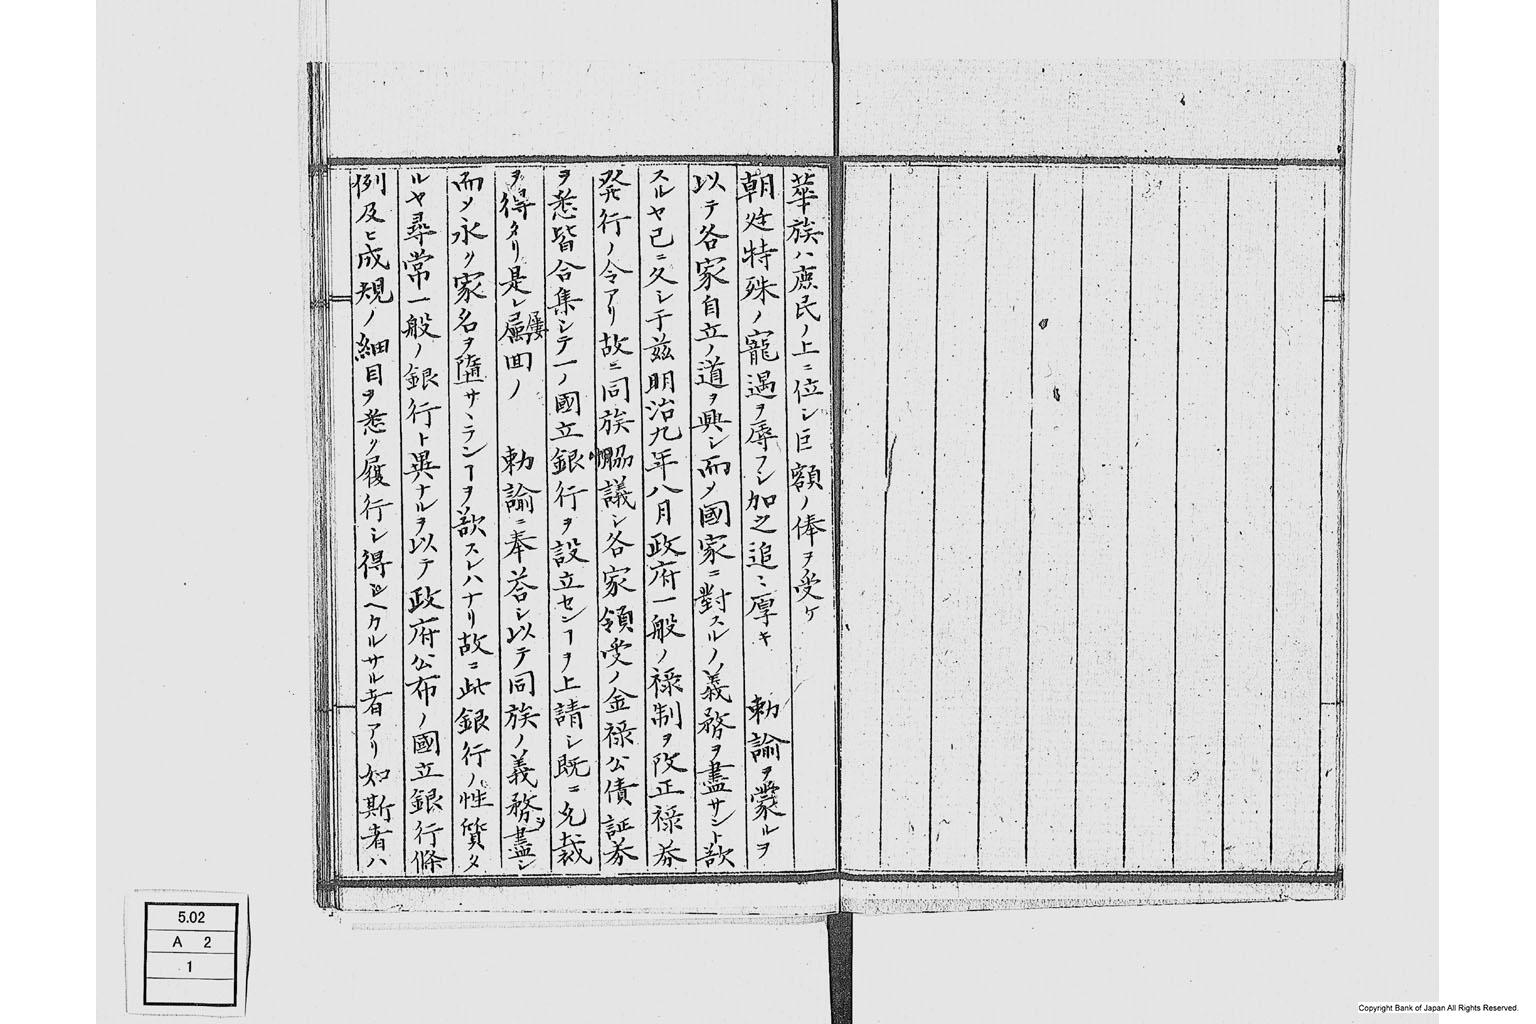 華族ハ庶民ノ上ニ位シ巨額ノ俸ヲ受ケ
朝廷特殊ノ寵遇ヲ辱フシ加之追々厚キ 勅諭ヲ蒙ルヲ
以テ各家自立ノ道ヲ興シ而メ國家ニ對スルノ義務ヲ盡サント欲
スルヤ已ニ久シ于茲明治九年八月政府一般ノ禄制ヲ改正禄券
発行ノ令アリ故ニ同族協議シ各家領受ノ金禄公債証券
ヲ悉皆合集シテ一ノ國立銀行ヲ設立センヿヲ上請シ既ニ允裁
ヲ得タリ是レ屢回ノ 勅諭ニ奉荅シ以テ同族ノ義務ヲ盡シ
而メ永ク家名ヲ墮サヽランヿヲ欲スレハナリ故ニ此銀行ノ性質タ
ルヤ尋常一般ノ銀行ト異ナルヲ以テ政府公布ノ國立銀行條
例及ヒ成規ノ細目ヲ悉ク履行シ得ヘカルサル者アリ如斯者ハ
5.02
A 2
1
Copyright Bank of Japan All Rights Reserved.